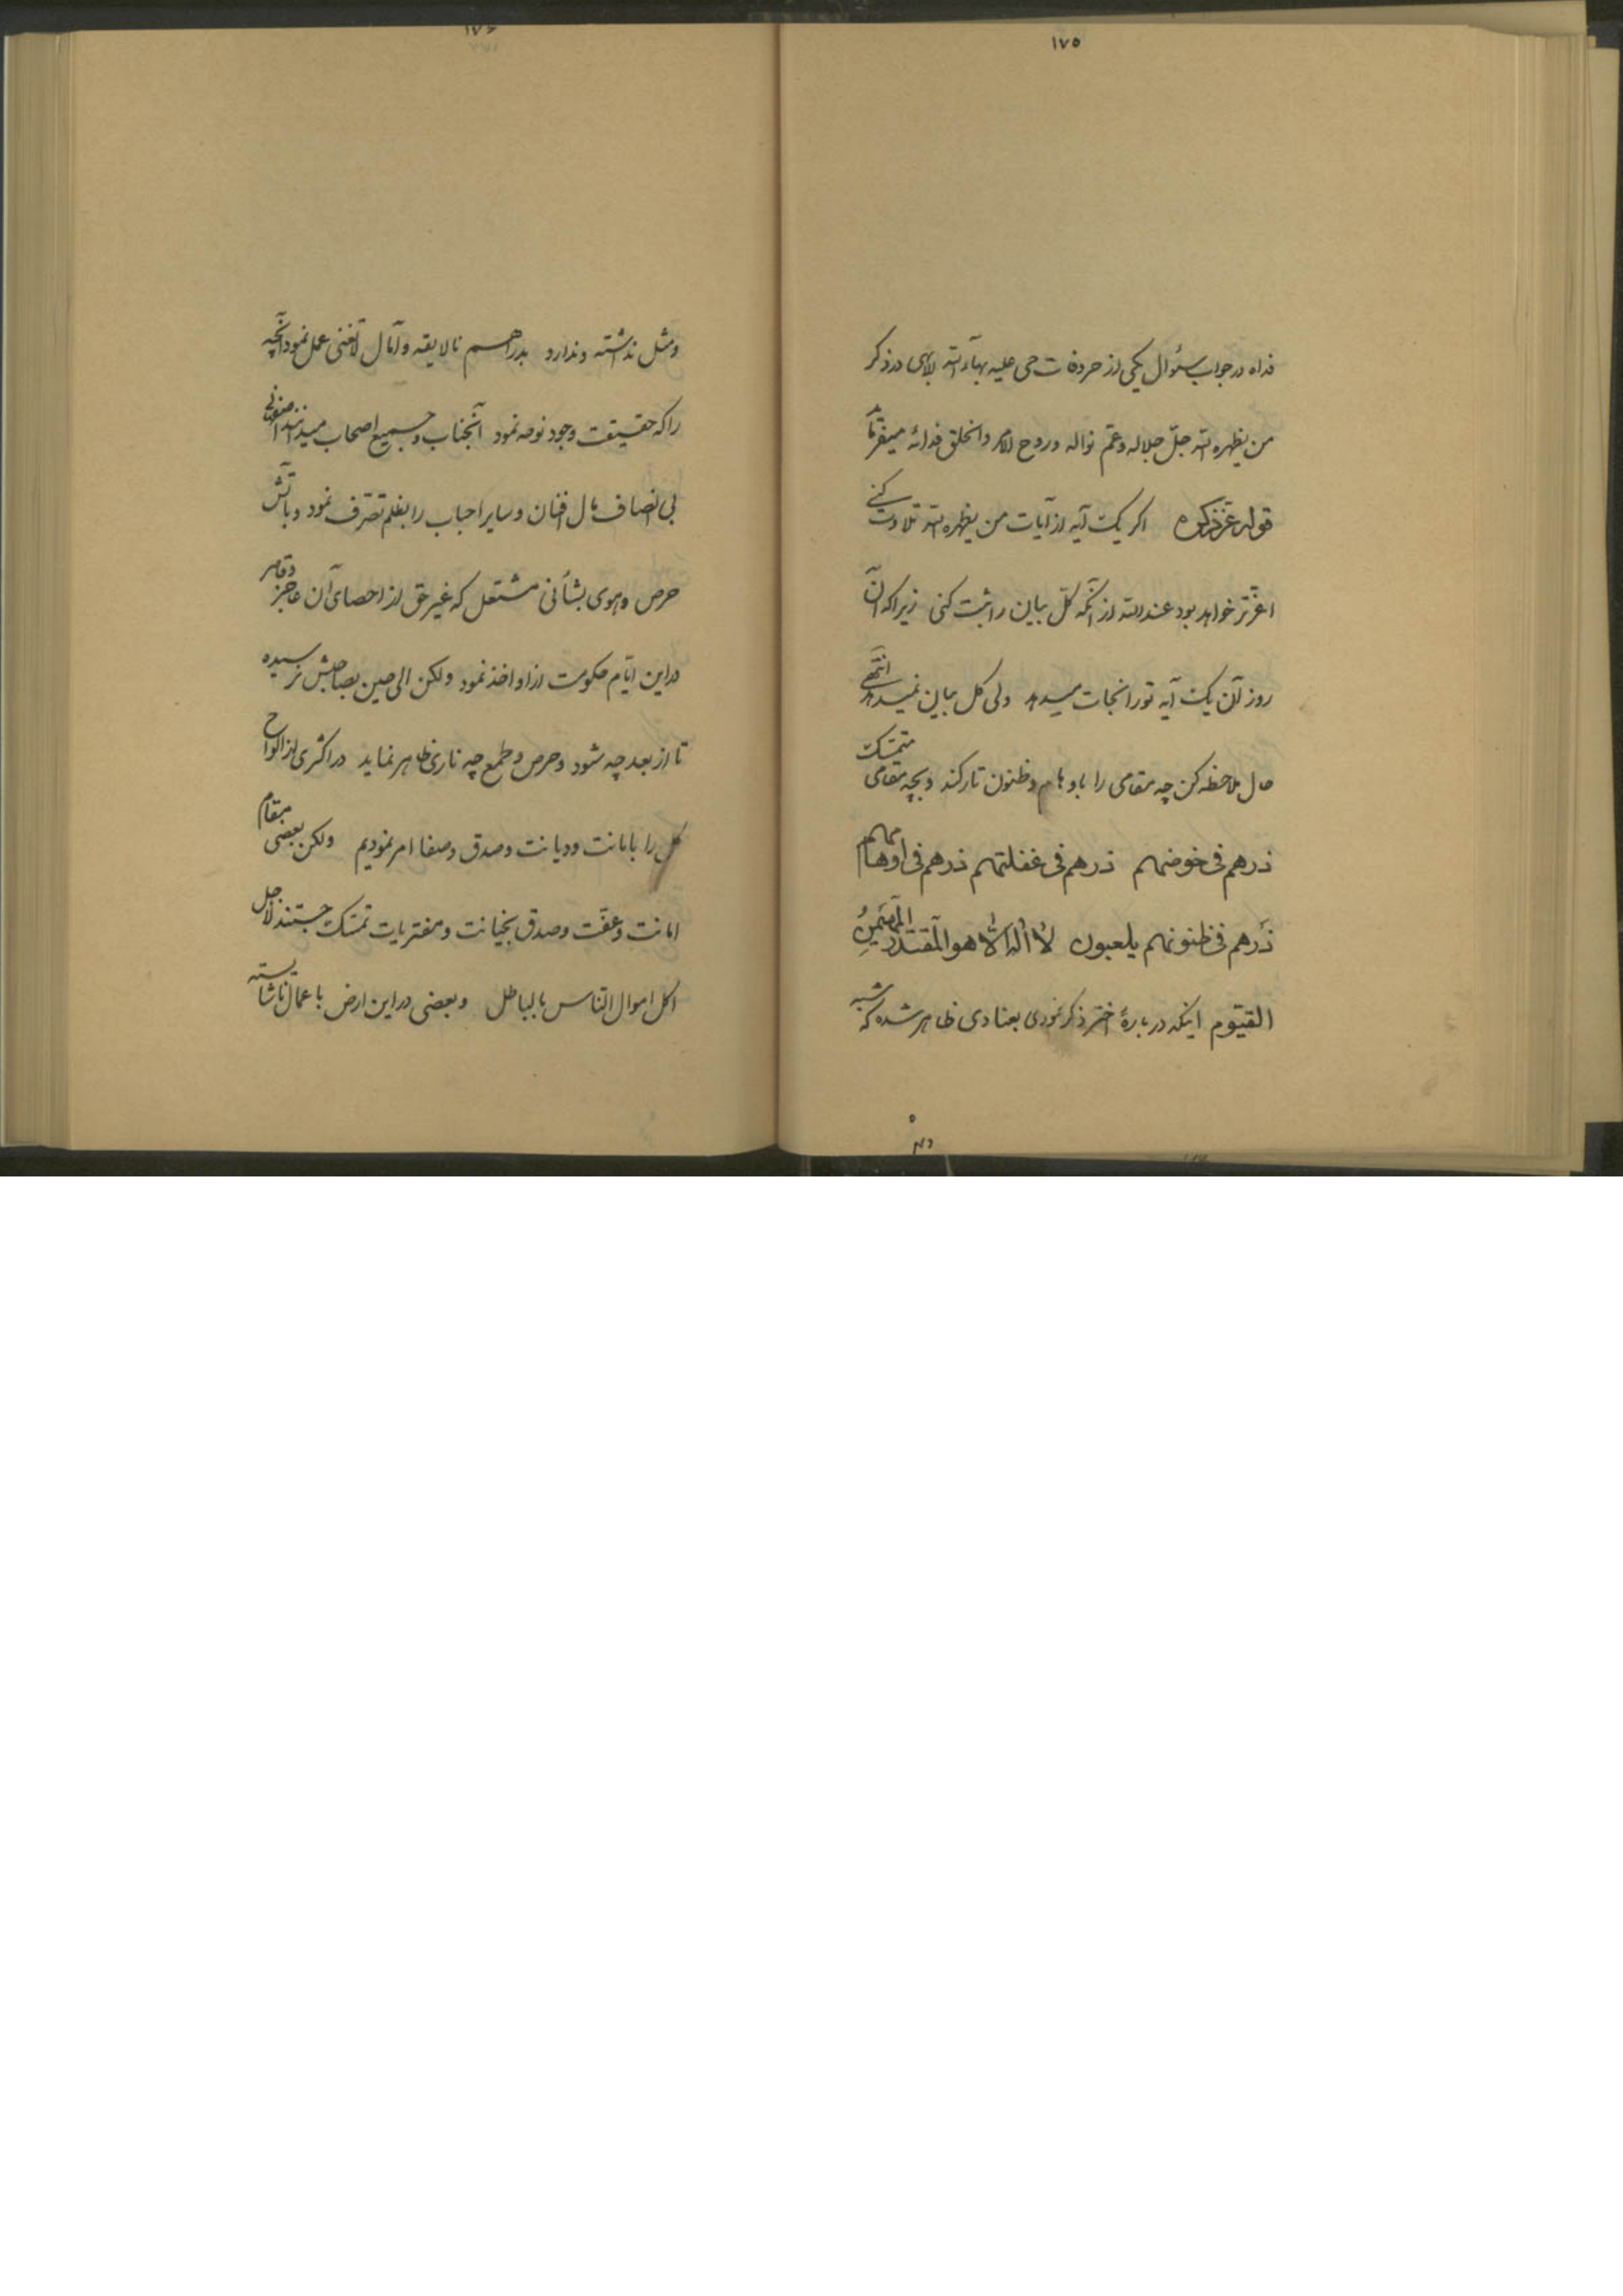 ١٧٥
فداه در جواب سئوال یکی از حروفات حی علیه بهآءالله الابهی در ذکر
من یظهره الله جلّ جلاله و عمّ نواله و روح الامر و الخلق فدائه میفرماید
قوله عزّ ذکره اگر یک آیه از آیات من یظهره الله تلاوت کنی
اعزّتر خواهد بود عندالله از آنکه کلّ بیان را ثبت کنی زیرا که آن
روز آن یک آیه تو را نجات میدهد ولی کل بیان نمیدهد انتهی
حال ملاحظه کن چه مقامی را باوهام و ظنون تارکند و بچه مقامی متمسّک
ذرهم فی خوضهم ذرهم فی غفلتهم ذرهم فی اوهامهم
ذرهم فی ظنونهم یلعبون لا اله الا هو المقتدر المهیمن
القیّوم اینکه در بارهٔ اختر ذکر نمودی بعنادی ظاهر شده که شبه
١٧٦
و مثل نداشته و ندارد بدراهم نالایقه و آمال لاتغنی عمل نمود آنچه
را که حقیقت وجود نوحه نمود آنجناب و جمیع اصحاب میدانند اصفهانی
بی انصاف مال افنان و سایر احباب را بظلم تصرف نمود و بآتش
حرص و هوی بشأنی مشتعل که غیر حق از احصای آن عاجز و قاصر
در این ایّام حکومت از او اخذ نمود ولکن الی حین بصاحبش نرسیده
تا از بعد چه شود و حرص و طمع چه ناری ظاهر نماید در اکثری از الواح
کل را بامانت و دیانت و صدق و صفا امر نمودیم ولکن بعضی بمقام
امانت و عفّت و صدق بخیانت و مفتریات تمسّک جستند لاجل
اکل اموال الناس بالباطل و بعضی در این ارض باعمال ناشایسته